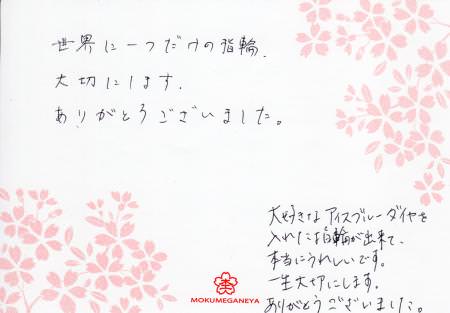 世界に一つだけの指輪.
大切にします.
ありがとうございました。
大好きなアイスブルーダイヤを
入れた指輪が出来て、
本当にうれしいです。
一生大切にします。
ありがとうございました。
MOKUMEGANEYA